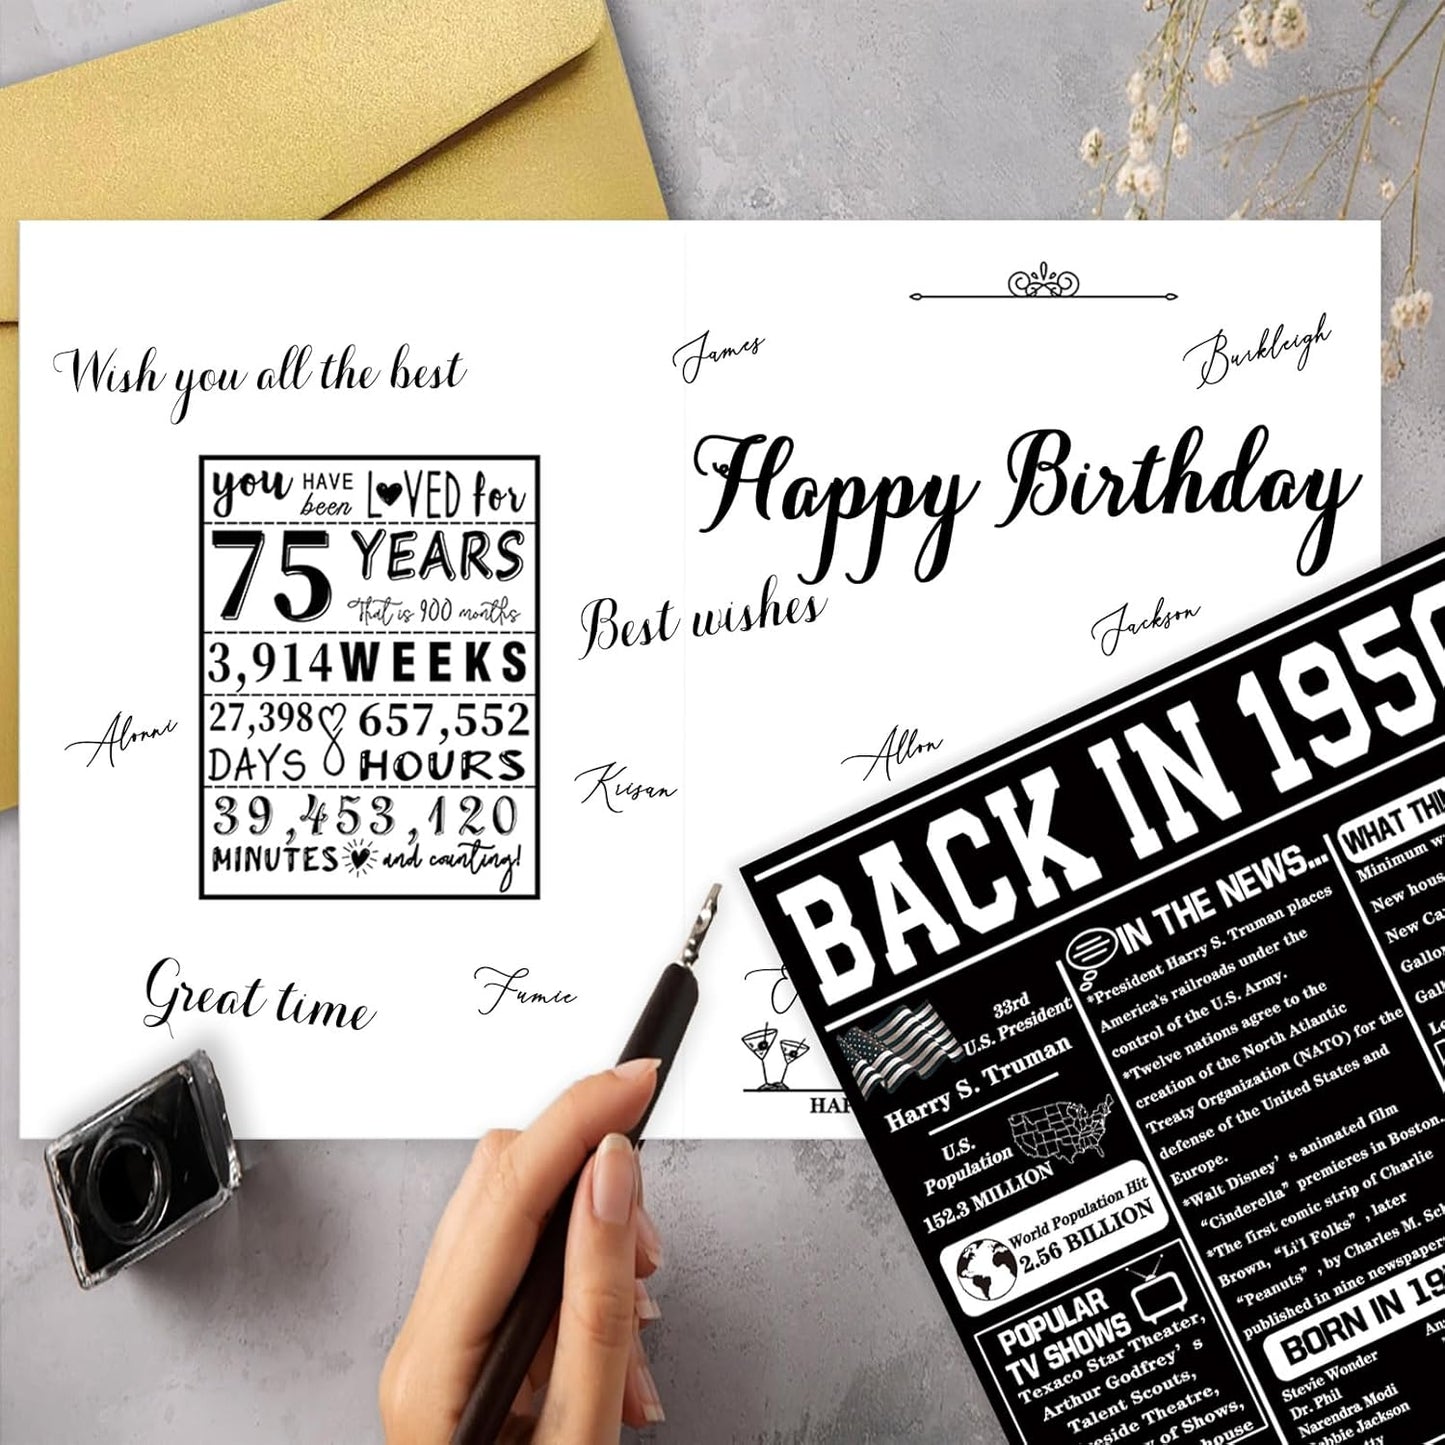 Wish you all the best
you HAVE been LOVED for
75 YEARS
That is 900 months
3,914 WEEKS
27,398 DAYS
657,552 HOURS
39,453,120
MINUTES and counting!
Alonni
Great time
Fumie
James
Burkleigh
Happy Birthday
Best wishes
Jackson
Allon
Kiisan
BACK IN 1950
33rd
U.S. President
Harry S. Truman
U.S.
Population
152.3 MILLION
World Population Hit
2.56 BILLION
POPULAR
TV SHOWS
Texaco Star Theater,
Arthur Godfrey's
Talent Scouts,
of Shows,
IN THE NEWS...
*President Harry S. Truman places
America's railroads under the
control of the U.S. Army.
*Twelve nations agree to the
creation of the North Atlantic
Treaty Organization (NATO) for the
defense of the United States and
Europe.
*Walt Disney's animated film
"Cinderella" premieres in Boston.
*The first comic strip of Charlie
Brown, "Li'l Folks", later
"Peanuts", by Charles M.
published in nine
BORN IN
Stevie Wonder
Dr. Phil
Narendra Modi
Jackson
WHAT
Minimum
New
New